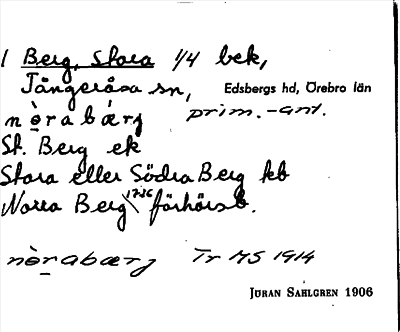 1 Berg, Stora 1/4 bek,
Tångeråsa sn, Edsbergs hd, Örebro län
nòrabærg prim.-ant.
St. Berg ek
Stora eller Södra Berg kb
Norra Berg 1736 förhörsb.
nòrabærg Tr MS 1914
JÖRAN SAHLGREN 1906